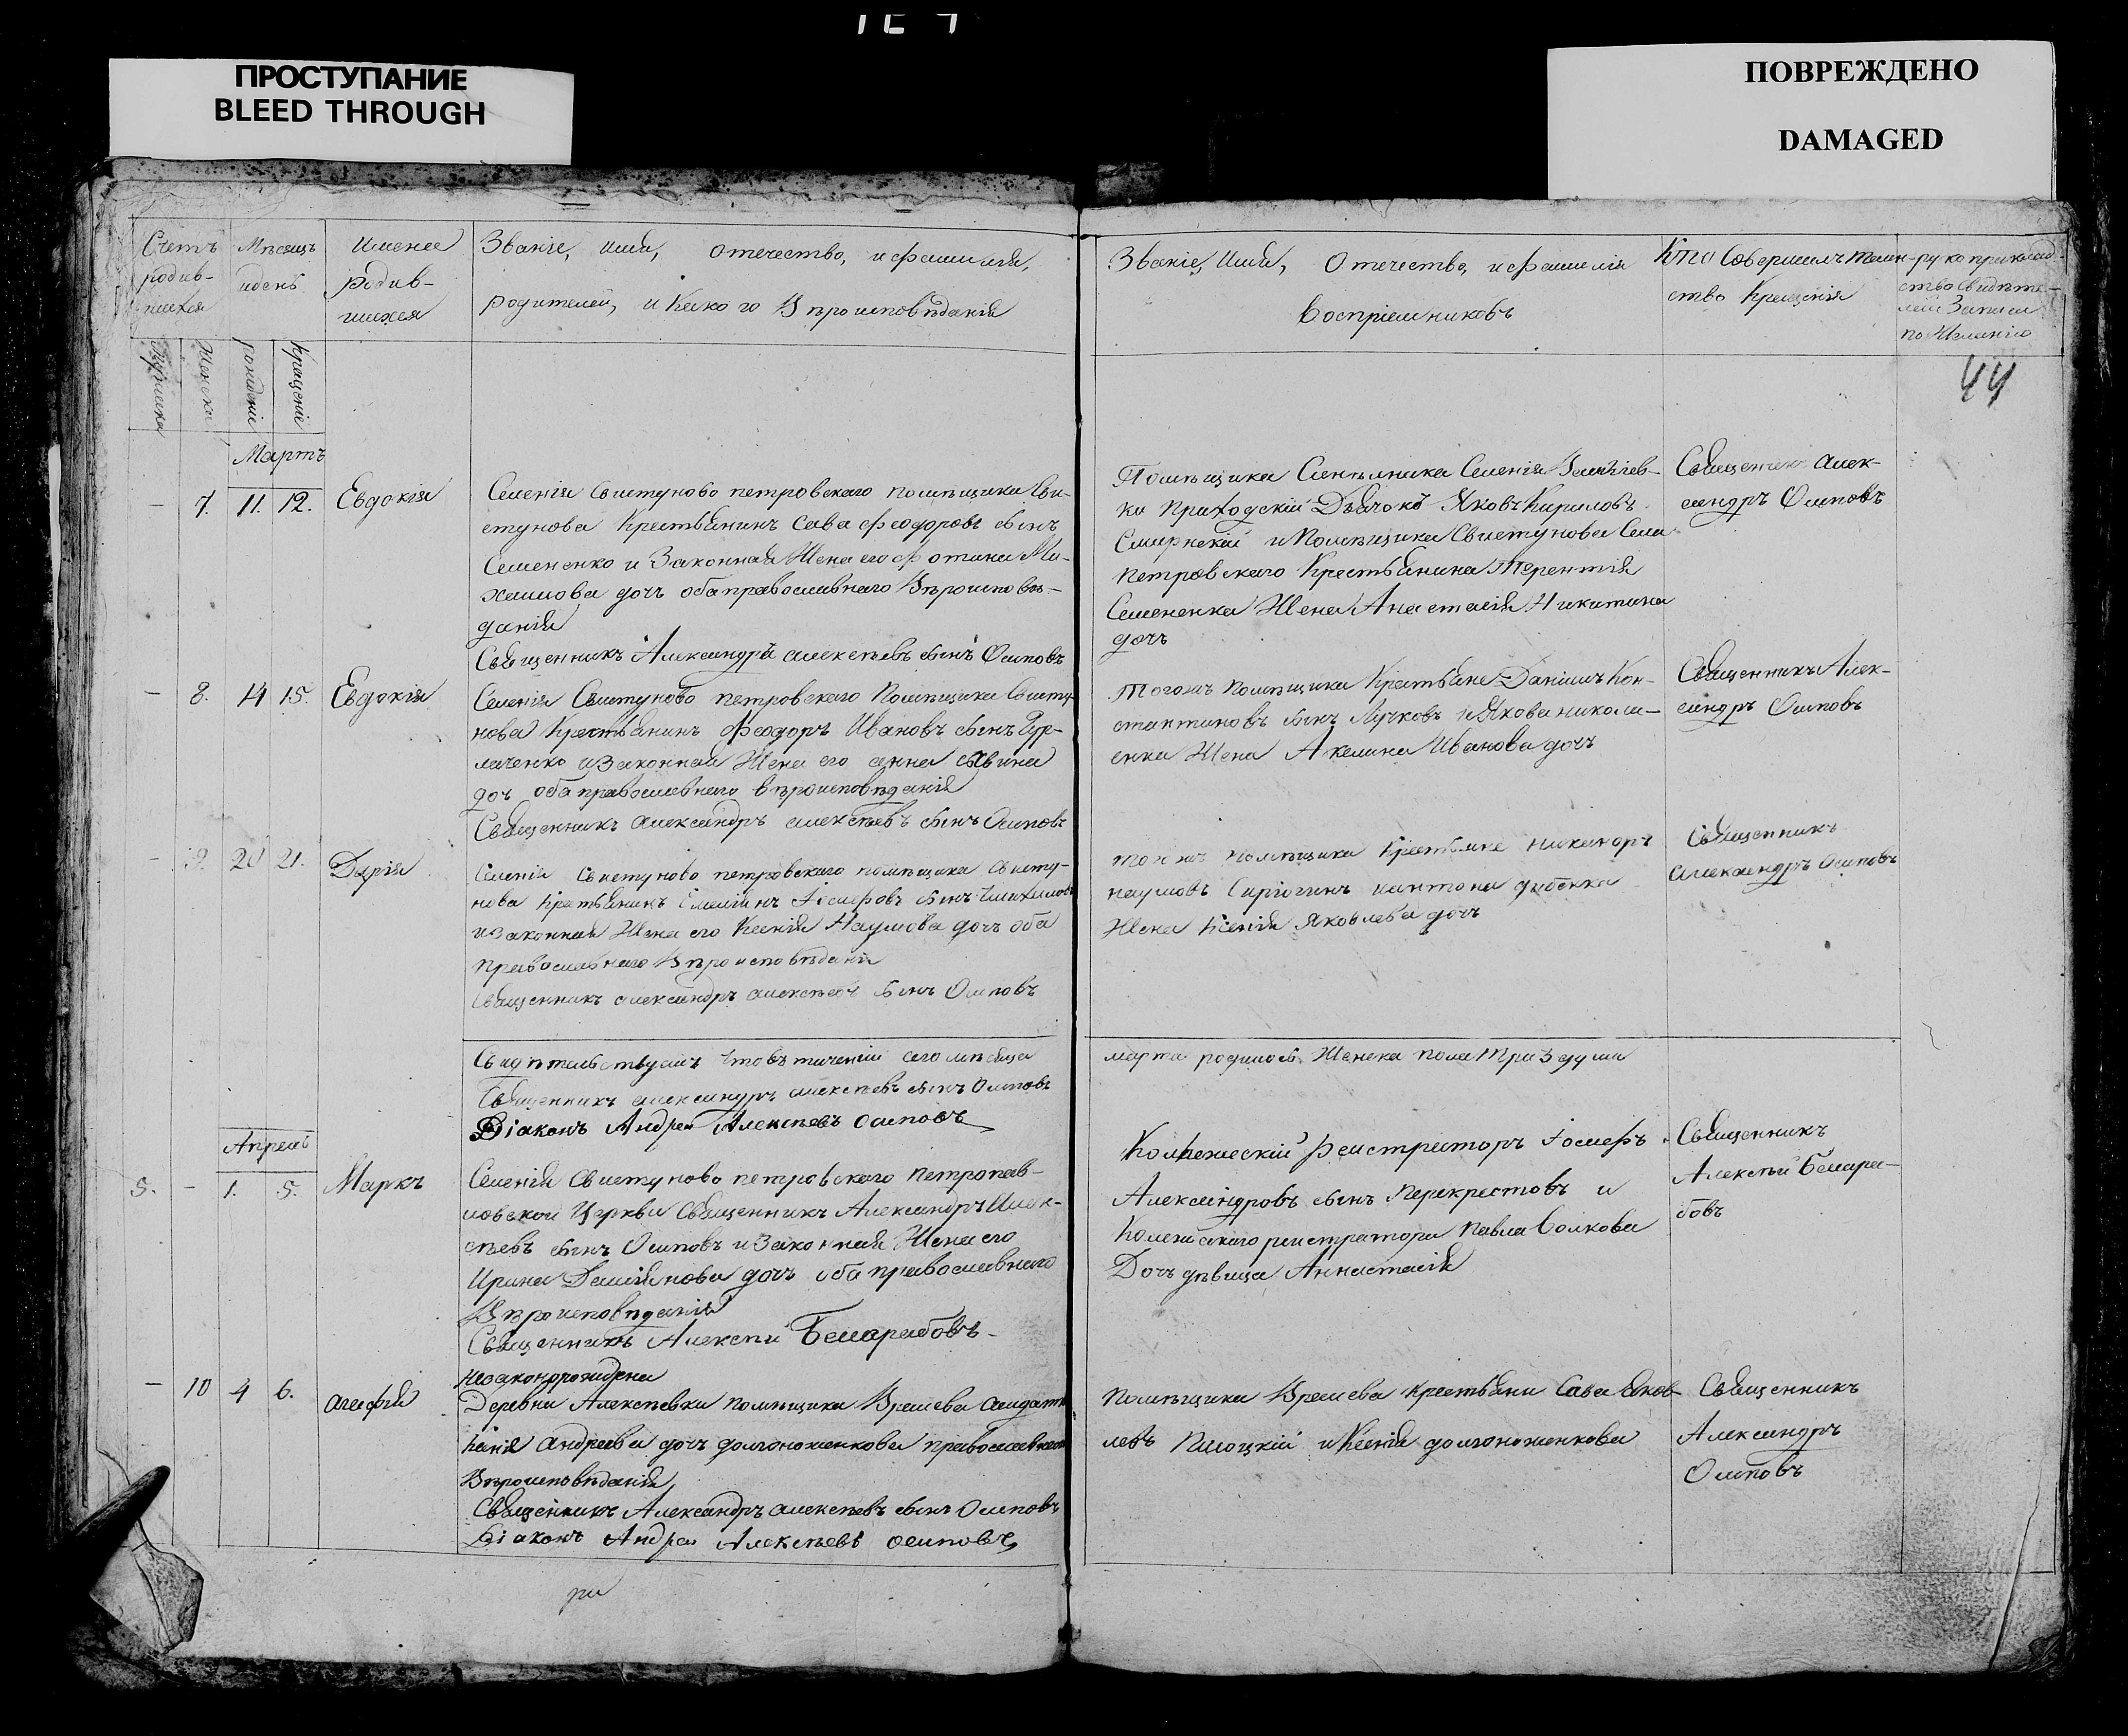 ПРОСТУПАНИЕ
BLEED THROUGH
ПОВРЕЖДЕНО
DAMAGED
Счетъ родив-шихся
Мѣсяцъ и день
Имена родив-шихся
Званіе, имя, отечество, и фамилія,
родителей, и какого вѣроисповѣданія
Званіе, имя, отечество, и фамилія
воспріемниковъ
Кто совершилъ таин-
ство крещенія
рукоприклад-
ство свидѣте-
лей записи
по желанію
мужеска
женска
рожденіе
крещеніе
44
Мартъ
– 7. 11. 12. Евдокія
Селенія Свистуново петровскаго помѣщика Сви-
стунова крестьянинъ Сава Феодоровъ сынъ
Семененко и законная жена его Фотина Ми-
хаилова дочь оба православнаго вѣроисповѣ-
данія
Священникъ Александръ Алексѣевъ сынъ Осиповъ
Помѣщика Синѣлника Селенія
ки приходскій Дьячокъ Яковъ Кириловъ
Смирнскій и помѣщика Свистунова Села
петровскаго крестьянина Терентія
Семененка жена Анастасія Никитина
дочь
Священникъ Алек-
сандръ Осиповъ
– 8. 14 15. Евдокія
Селенія Свистуново петровскаго помѣщика Свисту-
нова крестьянинъ Феодоръ Ивановъ сынъ
и законная жена его анна
доч оба православнаго вѣроисповѣданія
Священникъ александръ алексѣевъ сынъ Осиповъ
Тогожъ помѣщика крестьяне Даніилъ Кон-
стантиновъ сынъ Лучковъ и Якова никола-
енка жена Акелина Иванова дочь
Священникъ Алек-
сандръ Осиповъ
– 9. 20 21. Дарія
Селенія Свистуново петровскаго помѣщика Свисту-
нова крестьянинъ Іосифовъ сынъ
и законная жена его Ксенія Наумова дочь оба
православнаго вѣроисповѣданія
Священникъ александръ алексѣевъ сынъ Осиповъ
тогожъ помѣщика крестьяне никаноръ
наумовъ и антона дибенка
жена Ксенія Яковлева дочь
Священникъ
александръ Осиповъ
Свидѣтельствуемъ что въ теченіи сего мѣсяца
марта родилось женска пола три души
Священникъ александръ алексѣевъ сынъ Осиповъ
Діаконъ Андрей Алексѣевъ осиповъ
Апрель
5. – 1. 5. Маркъ
Селенія Свистуново петровскаго петропав-
ловской Церкви Священникъ Александръ Алек-
сѣевъ сынъ Осиповъ и законная жена его
Ирина Даміянова дочь оба православнаго
вѣроисповѣданія
Священникъ Алексѣй
Колежескій реистраторъ Іосифъ
Александровъ сынъ Перекрестовъ и
Колежскаго реистратора Павла Волкова
Дочь дѣвица Аннастасія
Священникъ
Алексѣй
– 10 4 6. агафія
незаконорождена
Деревни Алексѣевки помѣщика
андреева дочь долгоноженкова православнаго
вѣроисповѣданія
Священникъ Александръ алексѣевъ сынъ Осиповъ
Діаконъ Андрей Алексѣевъ осиповъ
помѣщика крестьяни Сава Яков-
левъ и Ксенія долгоноженкова
Священникъ
Александръ
Осиповъ